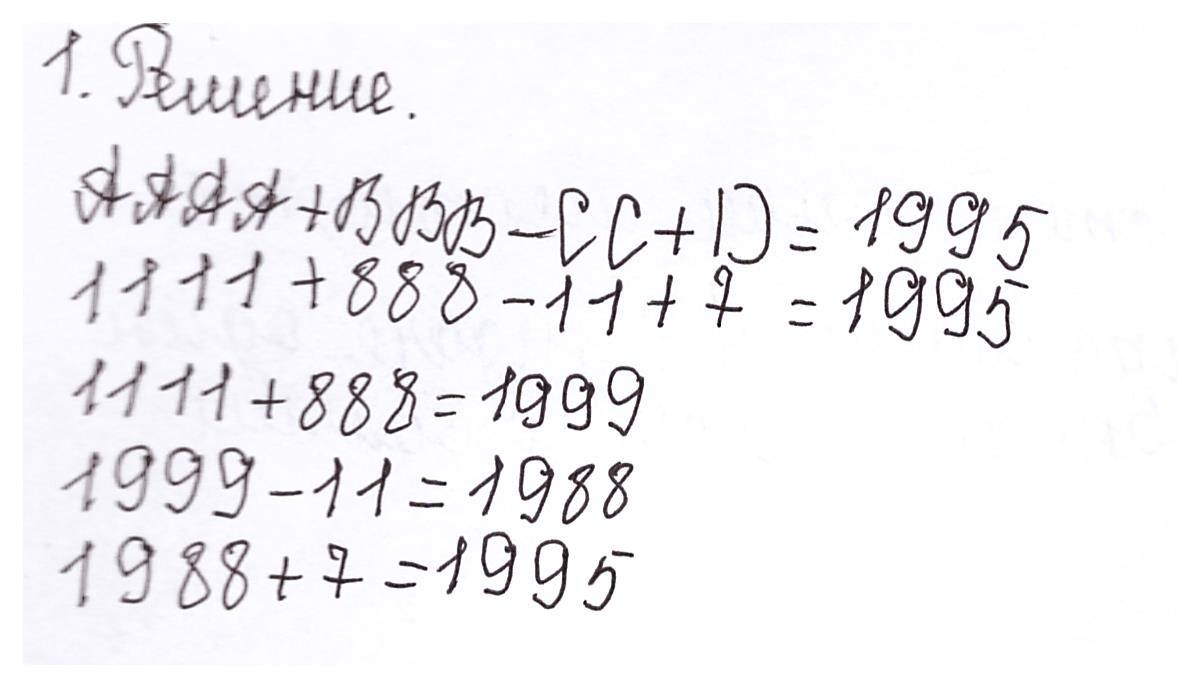 1. Решение.
АААА+ВВВ-СС+D=1995
1111+888-11+7=1995
1111+888=1999
1999-11=1988
1988+7=1995